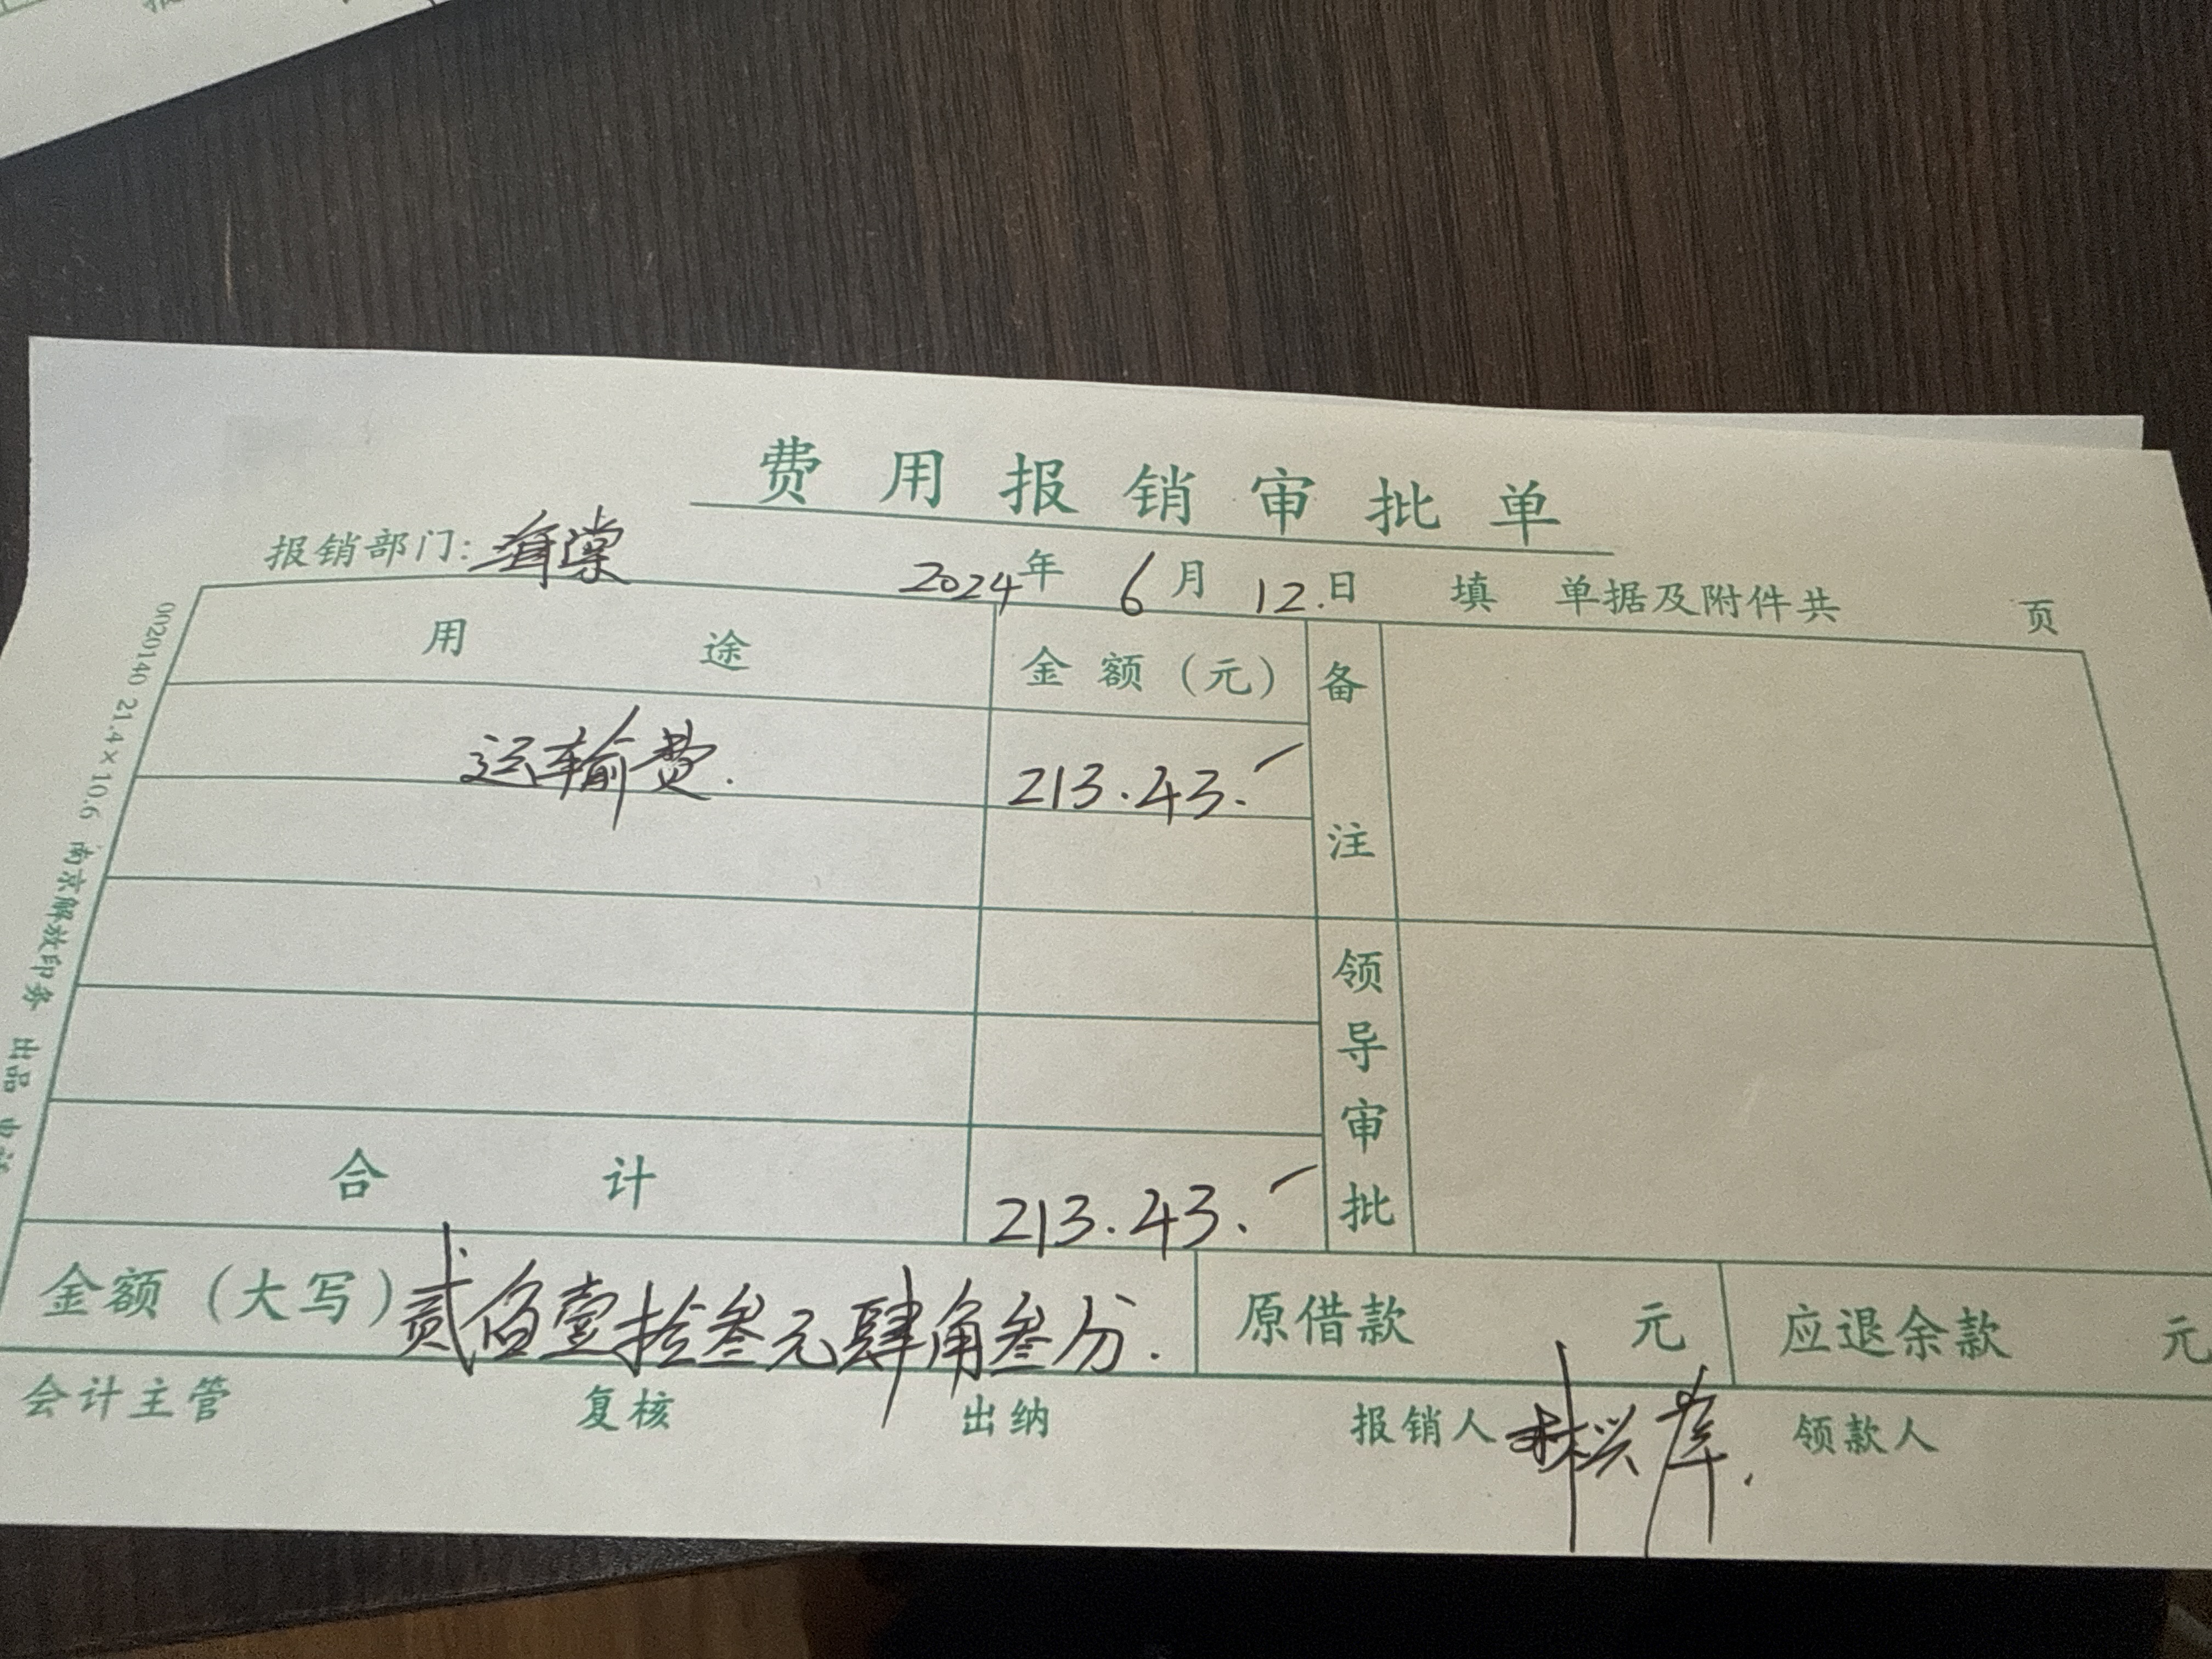 费用报销审批单
报销部门: 海棠 2024年 6月 12.日 填 单据及附件共 页
用途 金额(元) 备注
运输费. 213.43.
领导审批
合计 213.43.
金额(大写) 贰佰壹拾叁元肆角叁分. 原借款 元 应退余款 元
会计主管 复核 出纳 报销人 林兴 领款人
0020140 21.4×10.6 南京解放印务 出品